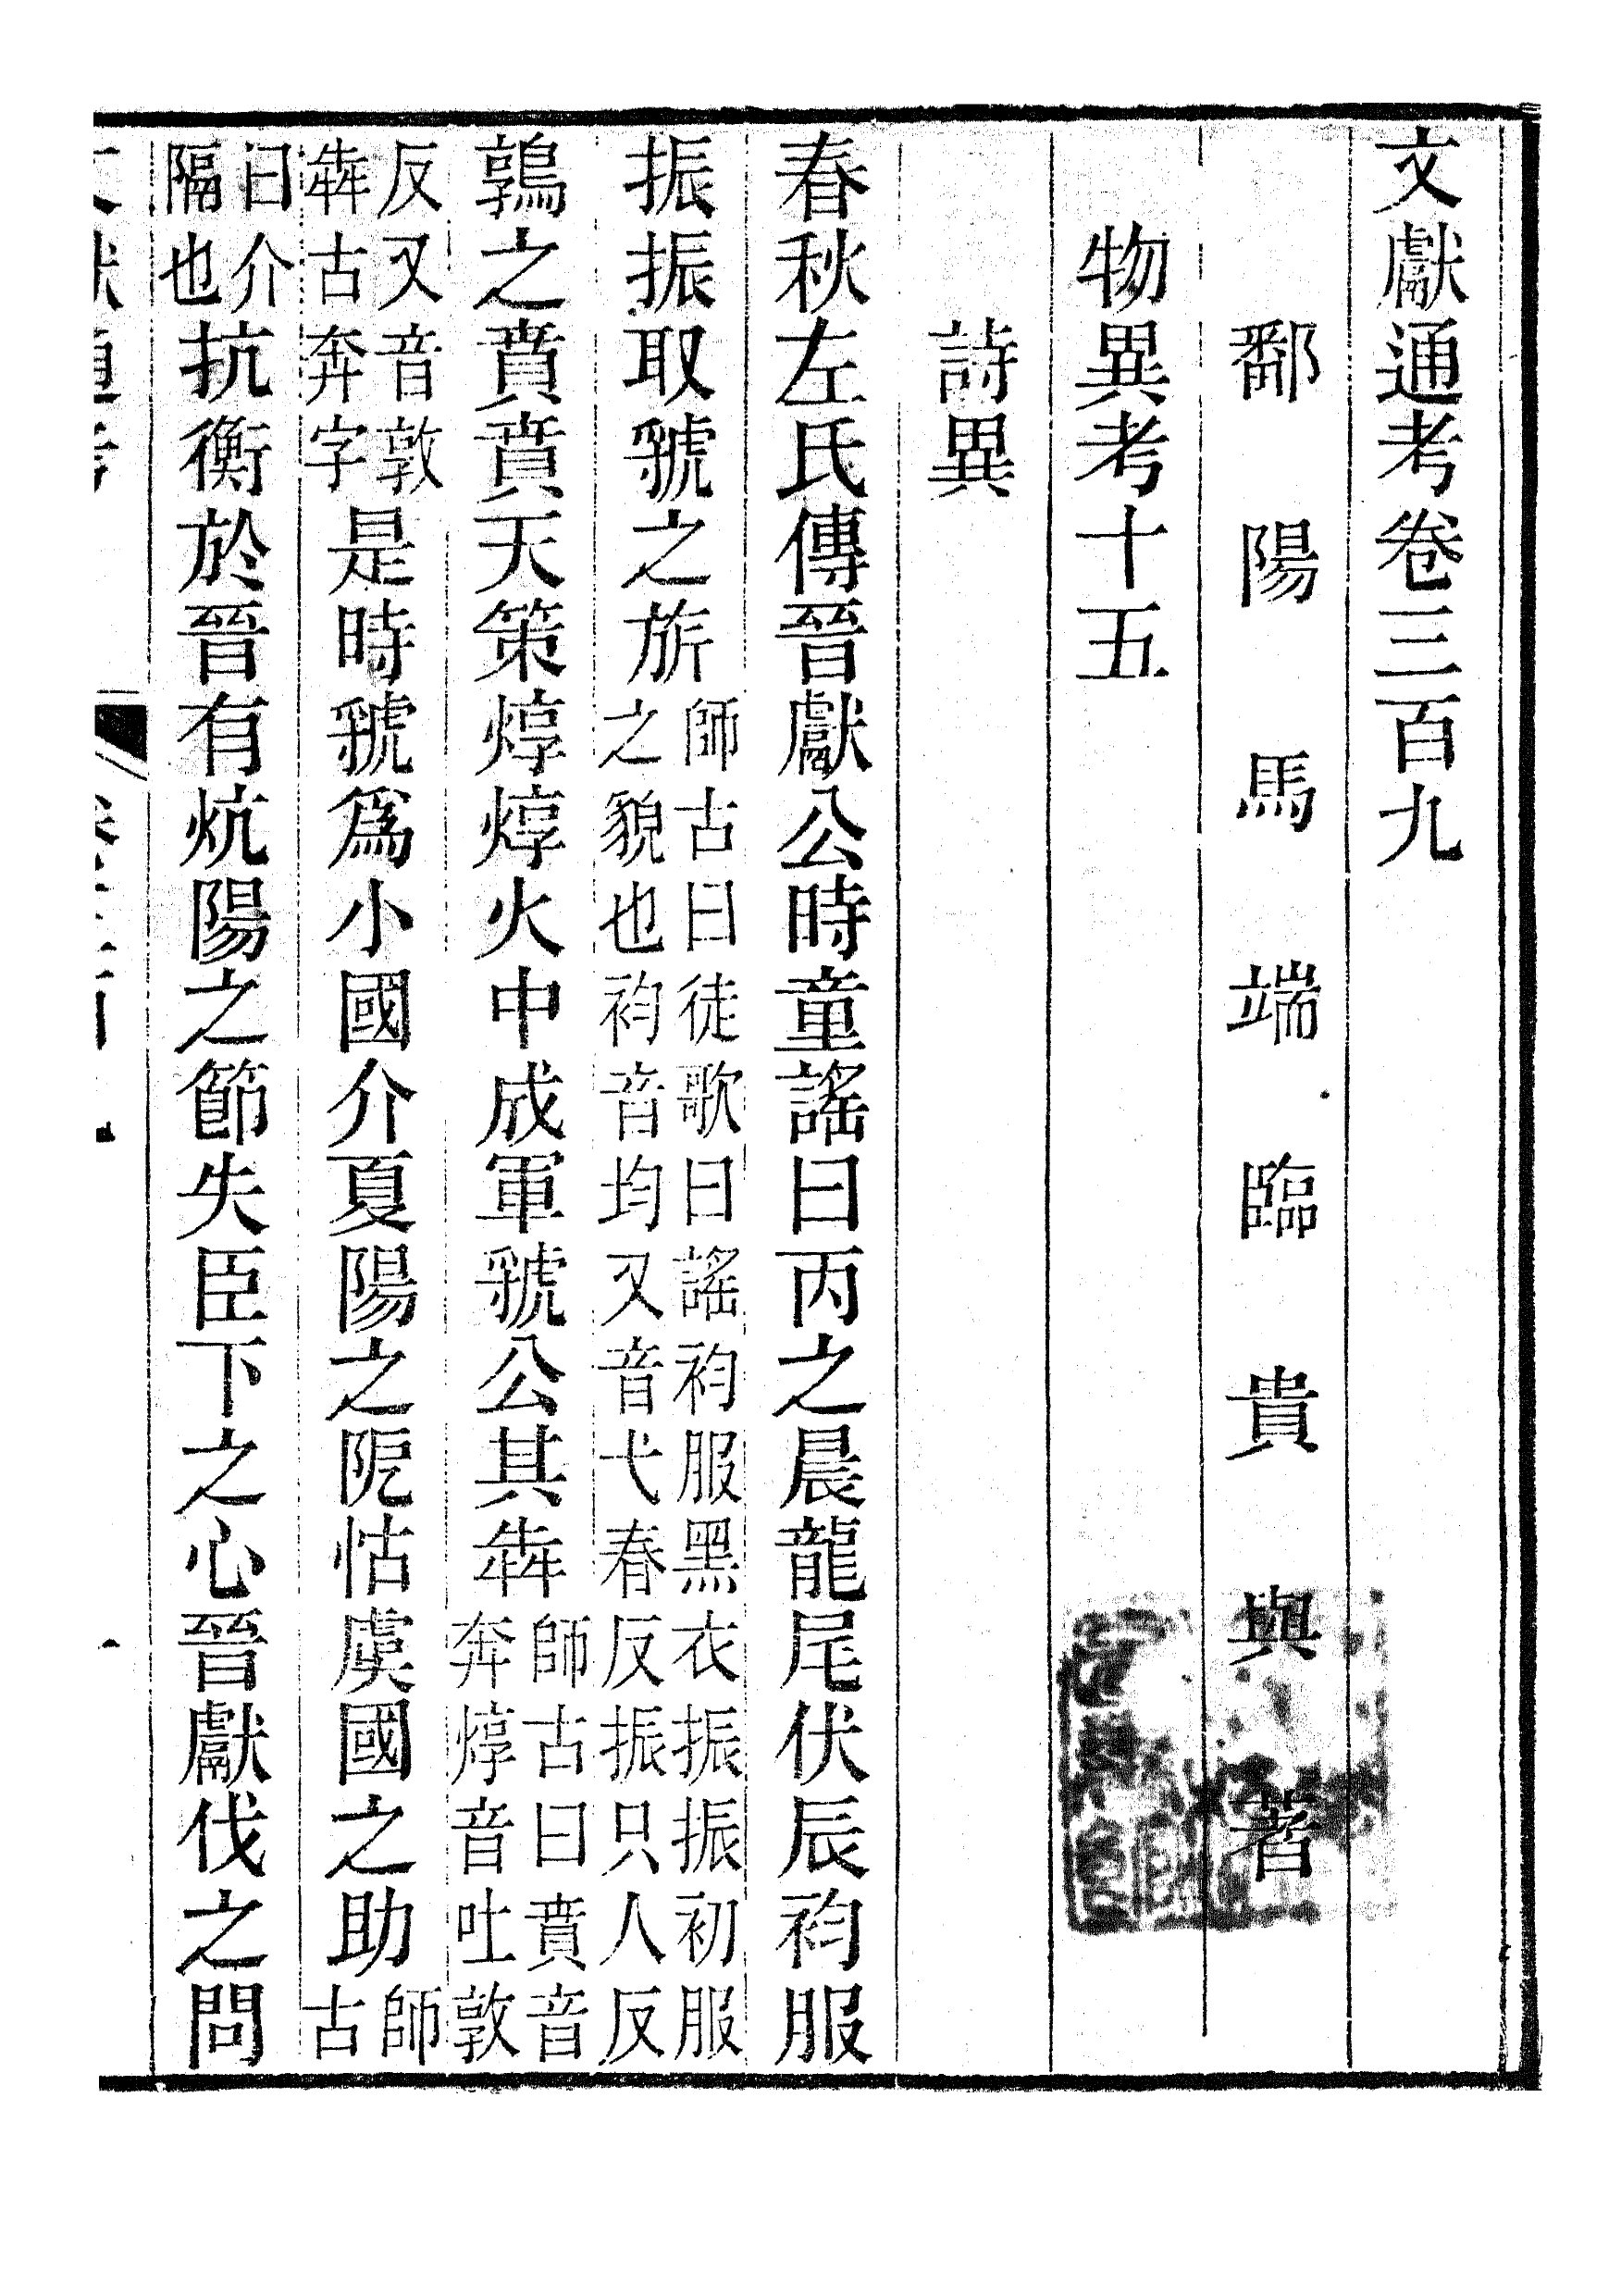 文獻通考卷三百九
鄱陽馬端臨貴與著
物異考十五
詩異
春秋左氏傳晉獻公時童謠曰丙之晨龍尾伏辰袀服
振振取虢之旂師古曰徒歌曰謠袀服黑衣振振初服之貌也袀音均又音弋春反振只人反
鶉之賁賁天策焞焞火中成軍虢公其犇師古曰賁音奔焞音吐敦
反又音敦犇古奔字是時虢爲小國介夏陽之阨怙虞國之助師古
曰介隔也抗衡於晉有炕陽之節失臣下之心晉獻伐之問